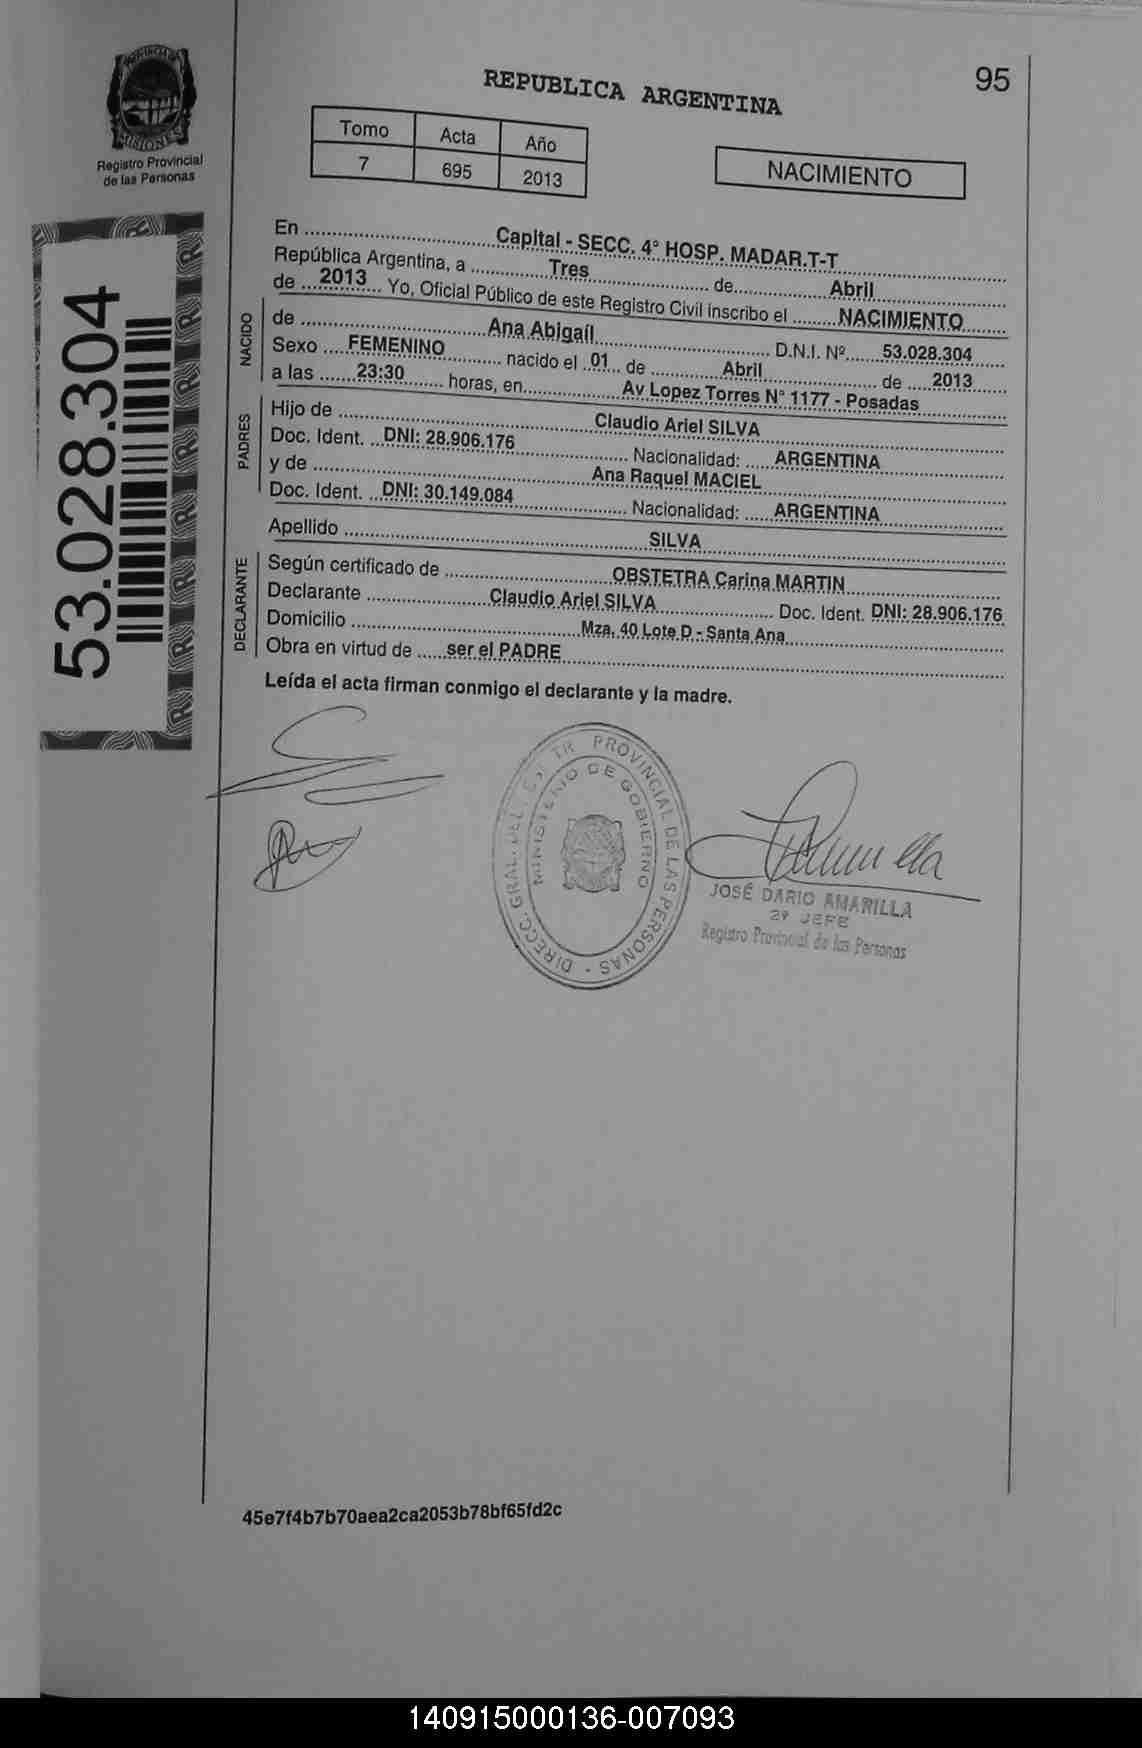 PROVINCIA DE
MISIONES
Registro Provincial
de las Personas
53.028.304
REPUBLICA ARGENTINA
95
Tomo Acta Año
7 695 2013
NACIMIENTO
En Capital - SECC. 4° HOSP. MADAR.T-T
República Argentina, a Tres de Abril
de 2013 Yo, Oficial Público de este Registro Civil inscribo el NACIMIENTO
NACIDO
de Ana Abigaíl D.N.I. Nº 53.028.304
Sexo FEMENINO nacido el 01 de Abril de 2013
a las 23:30 horas, en Av Lopez Torres N° 1177 - Posadas
PADRES
Hijo de Claudio Ariel SILVA
Doc. Ident. DNI: 28.906.176 Nacionalidad: ARGENTINA
y de Ana Raquel MACIEL
Doc. Ident. DNI: 30.149.084 Nacionalidad: ARGENTINA
Apellido SILVA
DECLARANTE
Según certificado de OBSTETRA Carina MARTIN
Declarante Claudio Ariel SILVA Doc. Ident. DNI: 28.906.176
Domicilio Mza. 40 Lote D - Santa Ana
Obra en virtud de ser el PADRE
Leída el acta firman conmigo el declarante y la madre.
DIRECC. GRAL. DEL PROVINCIAL DE LAS PERSONAS
MINISTERIO DE GOBIERNO
JOSÉ DARIO AMARILLA
2º JEFE
Registro Provincial de las Personas
45e7f4b7b70aea2ca2053b78bf65fd2c
140915000136-007093